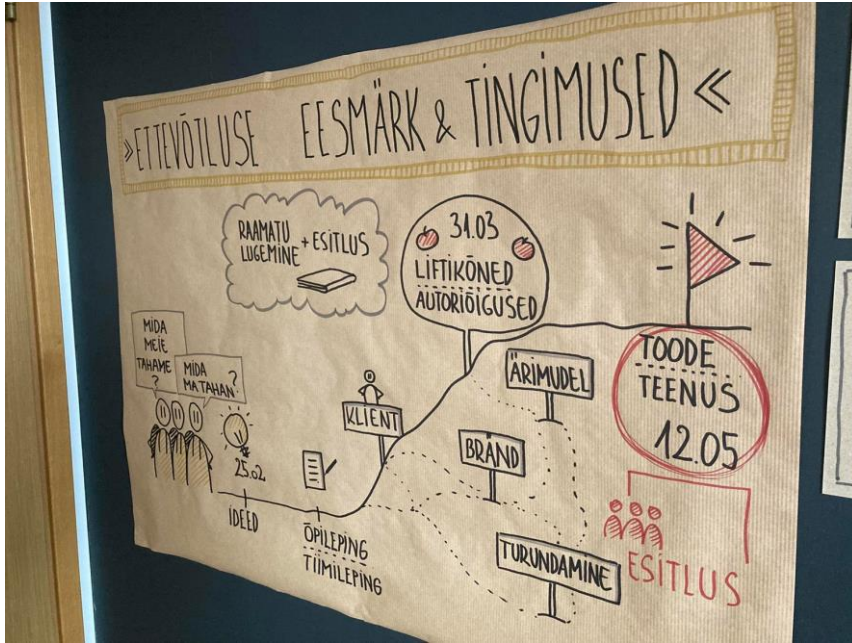 »ETTEVÕTLUSE EESMÄRK & TINGIMUSED«
RAAMATU
LUGEMINE + ESITLUS
31.03
LIFTIKÕNED
AUTORIÕIGUSED
MIDA
MEIE
TAHAME
?
MIDA
MA TAHAN?
25.02
IDEED
ÕPILEPING
TIIMILEPING
KLIENT
ÄRIMUDEL
BRÄND
TURUNDAMINE
TOODE
TEENUS
12.05
ESITLUS